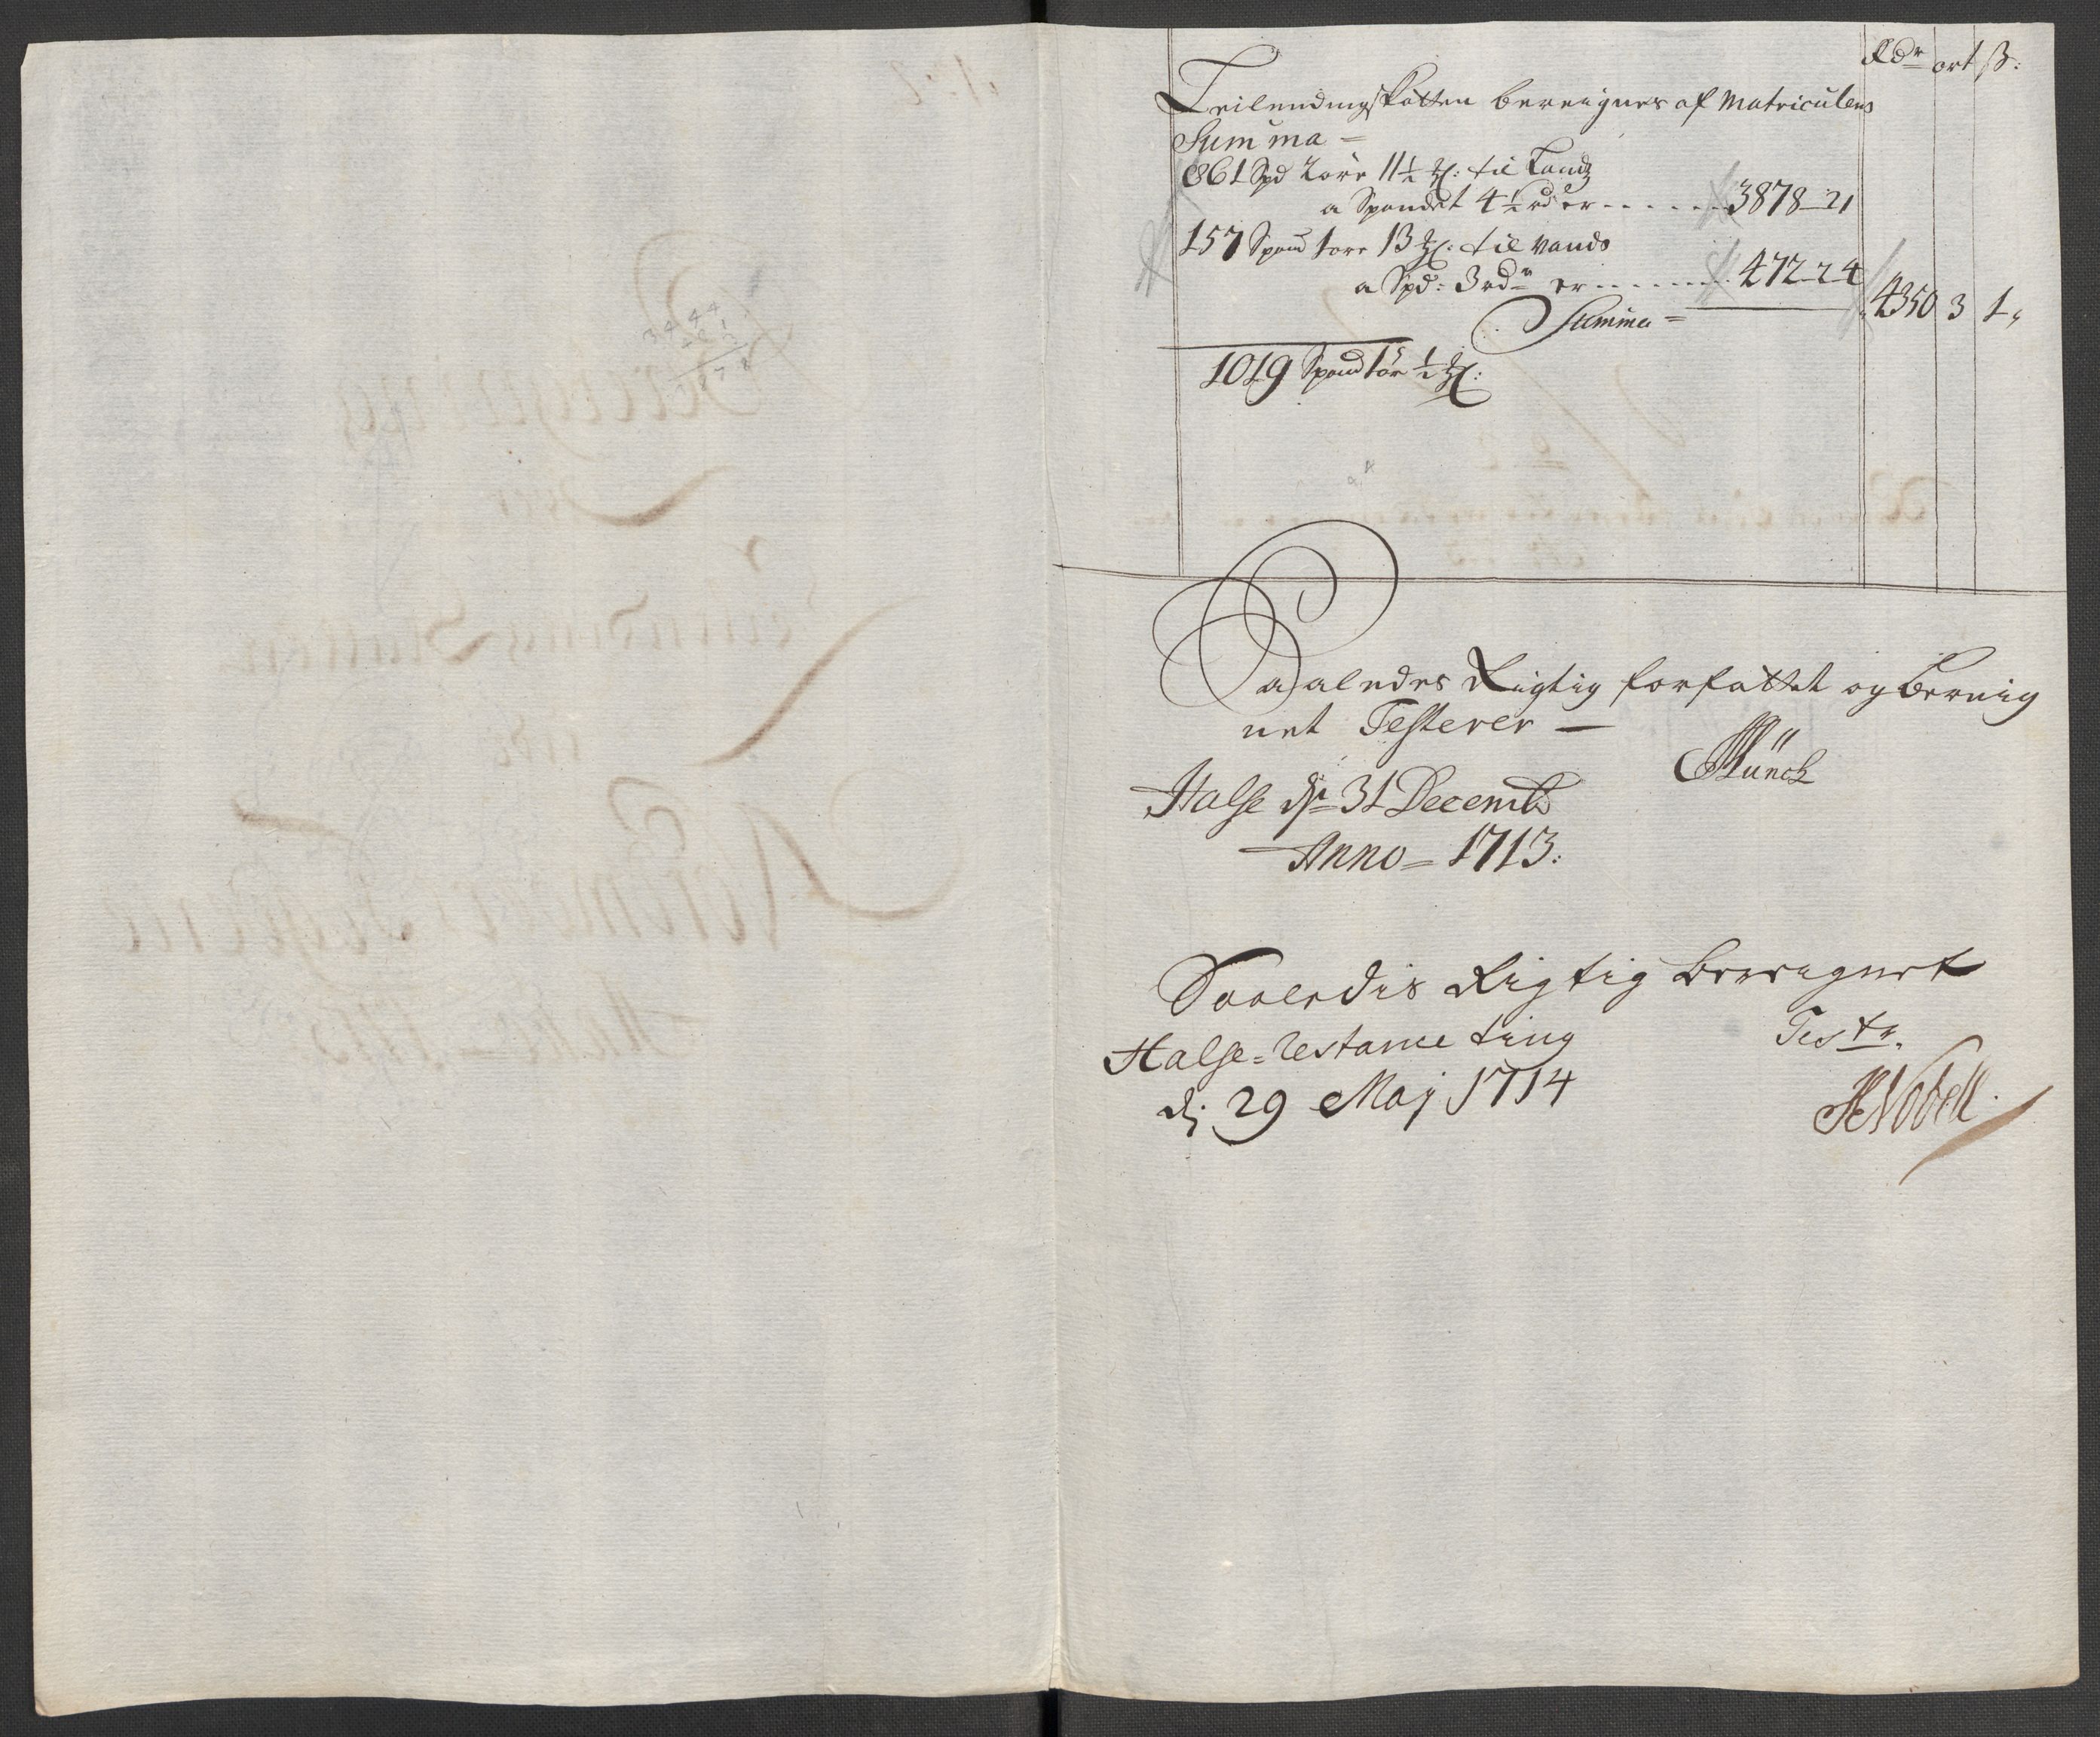 Rdr ort ß:
Leilendingskatten bereignes af Matriculens
Summa =
861 Spd 2 øre 11½ : til Landz
a Spandet 4½ rd er - - - - - - 3878 - 21
157 Spand 1 øre 13 : til Vands
a Spd: 3 rdr er - - - - - - 472 - 24
Summa = 4350 3 1
1019 Spand 1 ør ½ :
Saaledes Rigtig forfattet og Bereig
net Testerer —
Münch
Halse d: 31 Decemb
Anno = 1713:
Saaledis Rigtig Bereignet
Halse = restance ting
Test
d: 29 Maj 1714
Nobell
3444